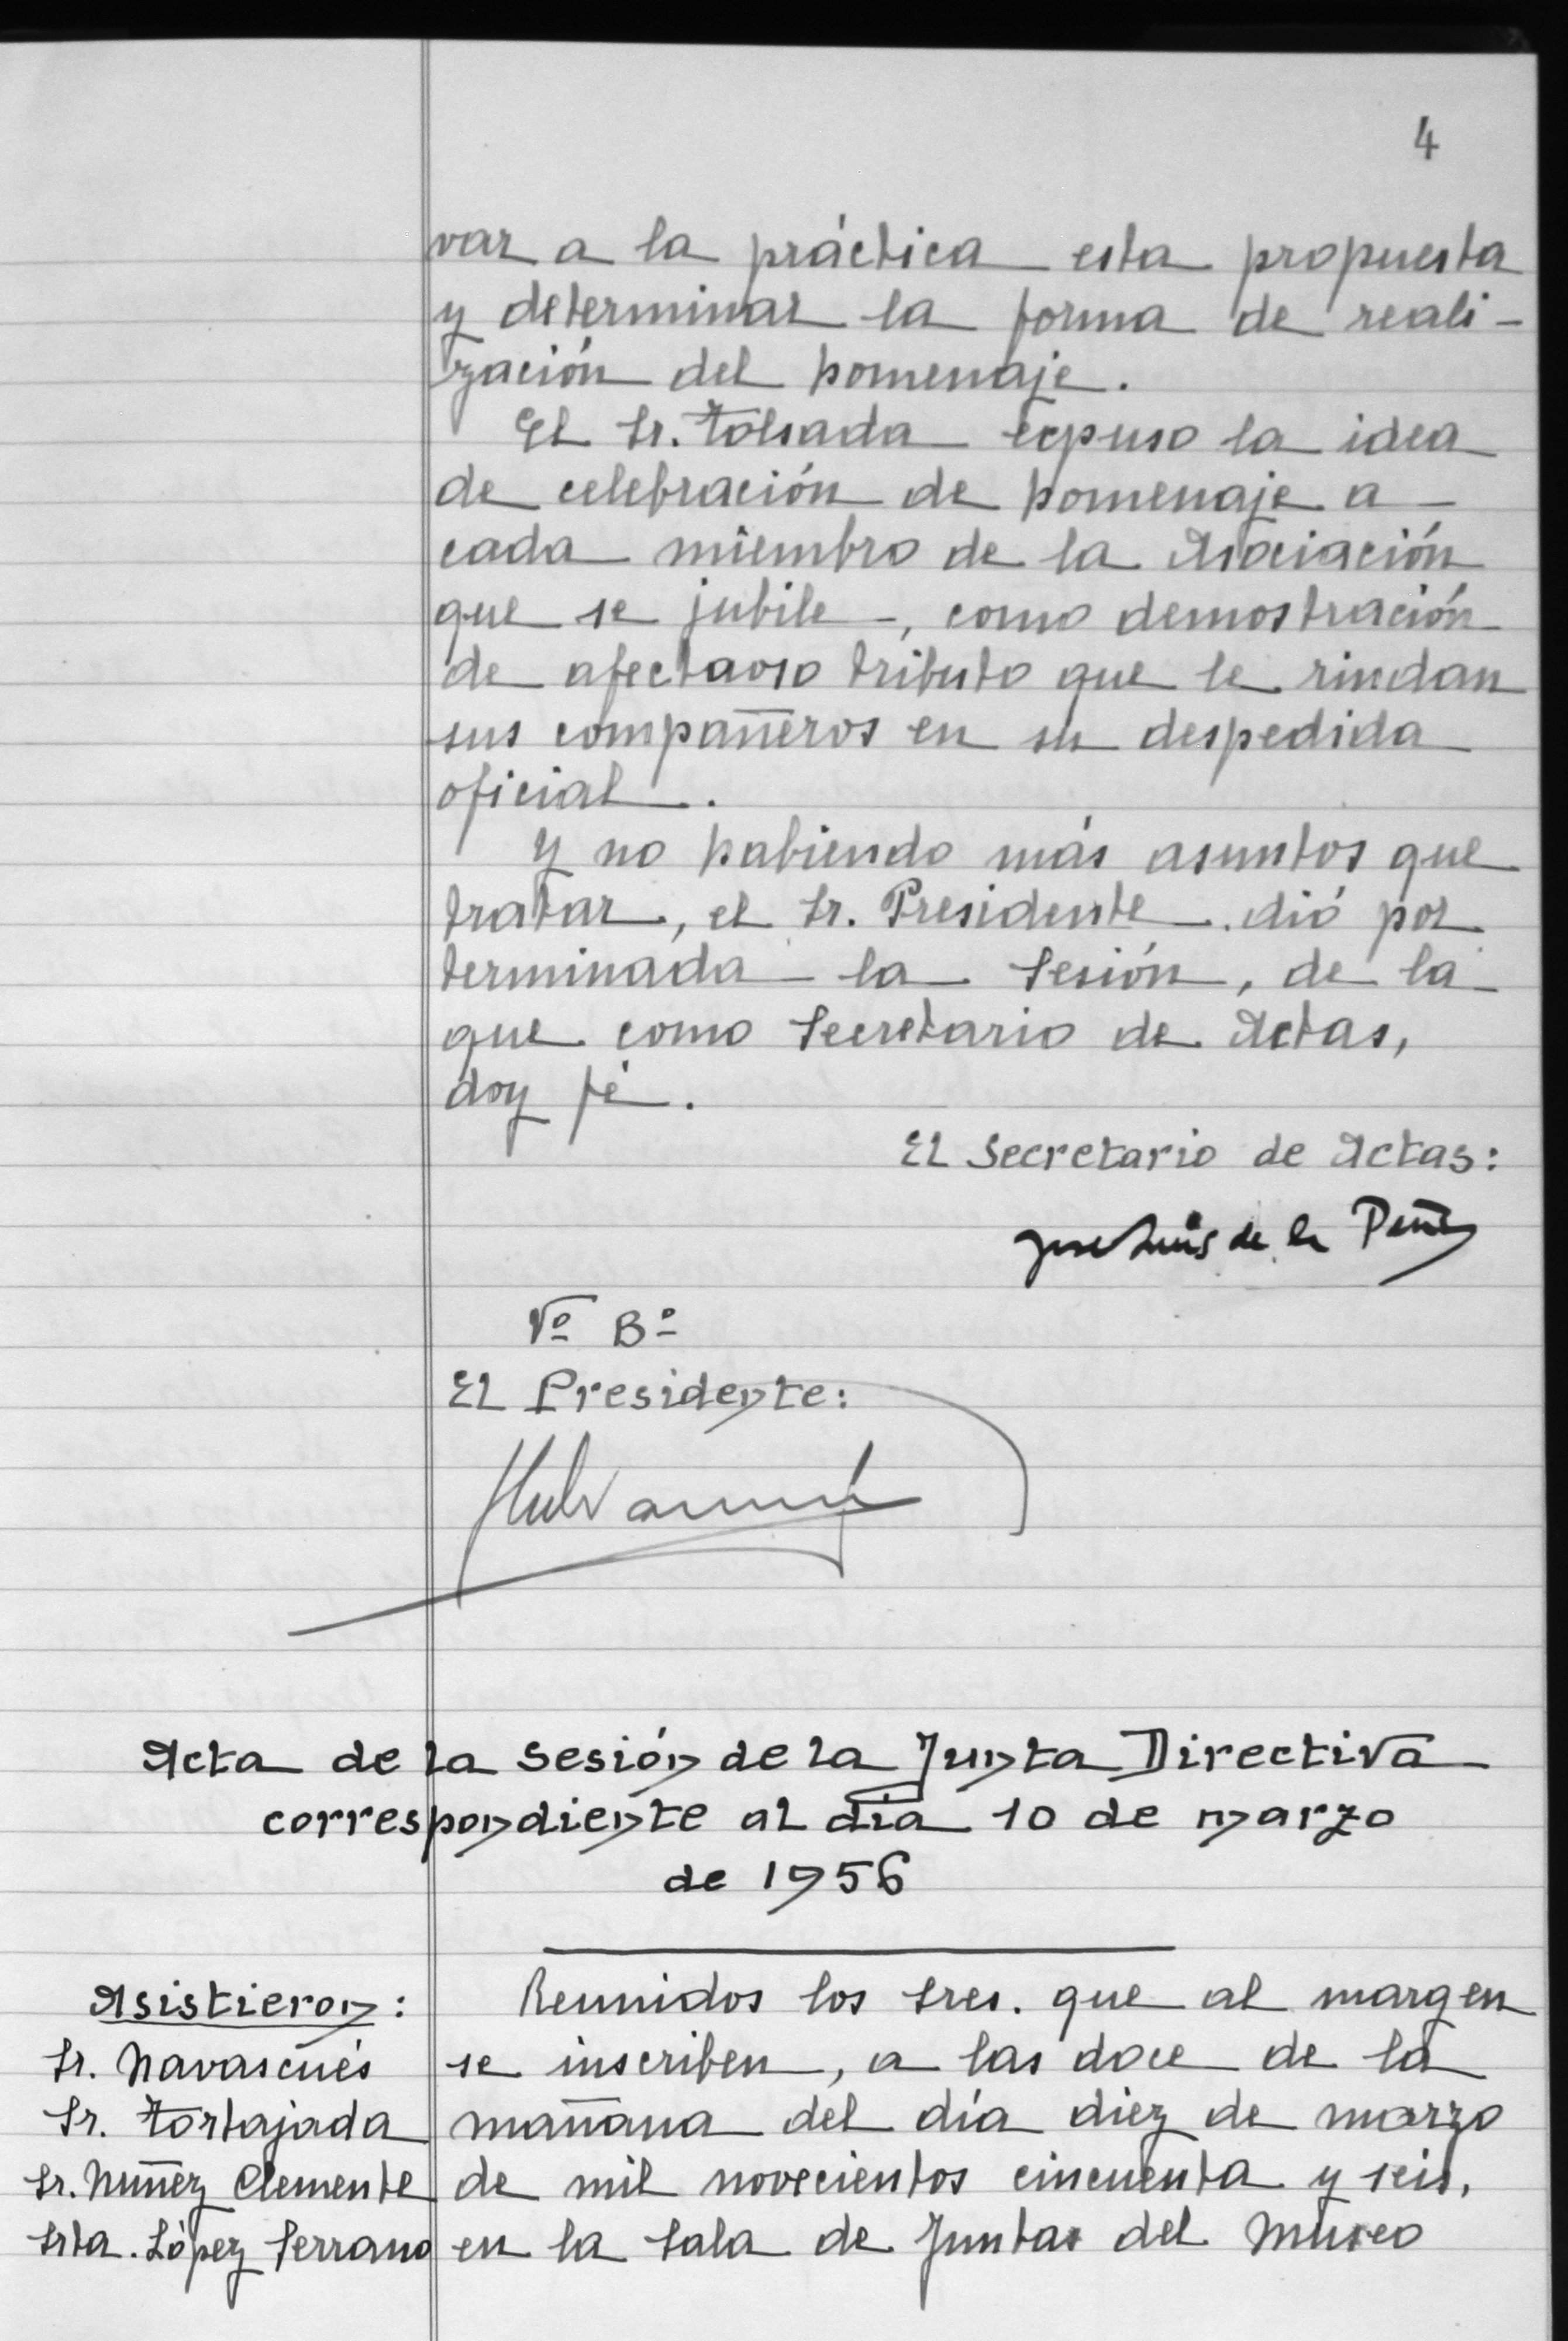 4
var a la práctica esta propuesta
y determinar la forma de reali-
zación del homenaje.
El Sr. Tolsada expuso la idea
de celebración de homenaje a
cada miembro de la Asociación
que se jubile, como demostración
de afectuoso tributo que le rindan
sus compañeros en su despedida
oficial.
Y no habiendo más asuntos que
tratar, el Sr. Presidente dió por
terminada la Sesión, de la
que como Secretario de Actas,
doy fé.
El Secretario de Actas:
Jose Luis de la Peña
Vº Bº
El Presidente:
Acta de la Sesión de la Junta Directiva
correspondiente al día 10 de marzo
de 1956
Asistieron:
Sr. Navascués
Sr. Tortajada
Sr. Nuñez Clemente
Srta. López Serrano
Reunidos los Sres. que al margen
se inscriben, a las doce de la
mañana del día diez de marzo
de mil novecientos cincuenta y seis,
en la Sala de Juntas del Museo